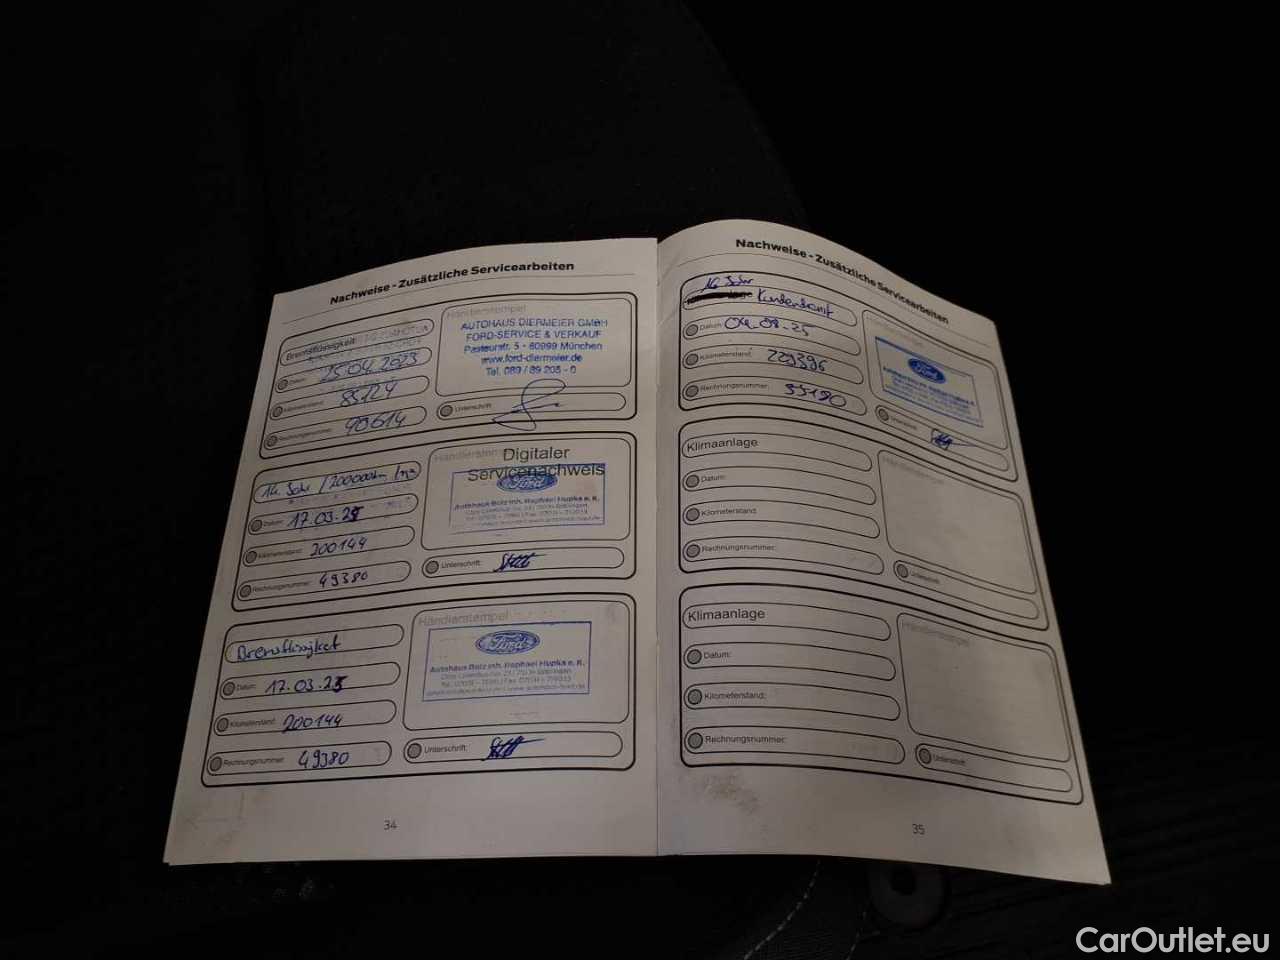 Nachweise - Zusätzliche Servicearbeiten
Bremsflüssigkeit
Datum: 25.04.2023
Kilometerstand: 85124
Rechnungsnummer: 40614
Händlerstempel
AUTOHAUS DIERMEIER GMBH
FORD-SERVICE & VERKAUF
Pasteurstr. 5 - 80999 München
www.ford-diermeier.de
Tel. 089 / 89 205 - 0
Unterschrift:
14. Jahr / 200000km
Datum: 17.03.25
Kilometerstand: 200144
Rechnungsnummer: 49380
Händlerstempel
Digitaler
Servicenachweis
Ford
Autohaus Bolz Inh. Raphael Hupka e. K.
Unterschrift:
Bremsflüssigkeit
Datum: 17.03.25
Kilometerstand: 200144
Rechnungsnummer: 49380
Händlerstempel
Ford
Autohaus Bolz Inh. Raphael Hupka e. K.
Unterschrift:
34
Nachweise - Zusätzliche Servicearbeiten
Jahr
Kundendienst
Datum: 04.08.25
Kilometerstand: 223396
Rechnungsnummer: 55190
Händlerstempel
Ford
Unterschrift:
Klimaanlage
Datum:
Kilometerstand:
Rechnungsnummer:
Händlerstempel
Unterschrift:
Klimaanlage
Datum:
Kilometerstand:
Rechnungsnummer:
Händlerstempel
Unterschrift:
35
CarOutlet.eu